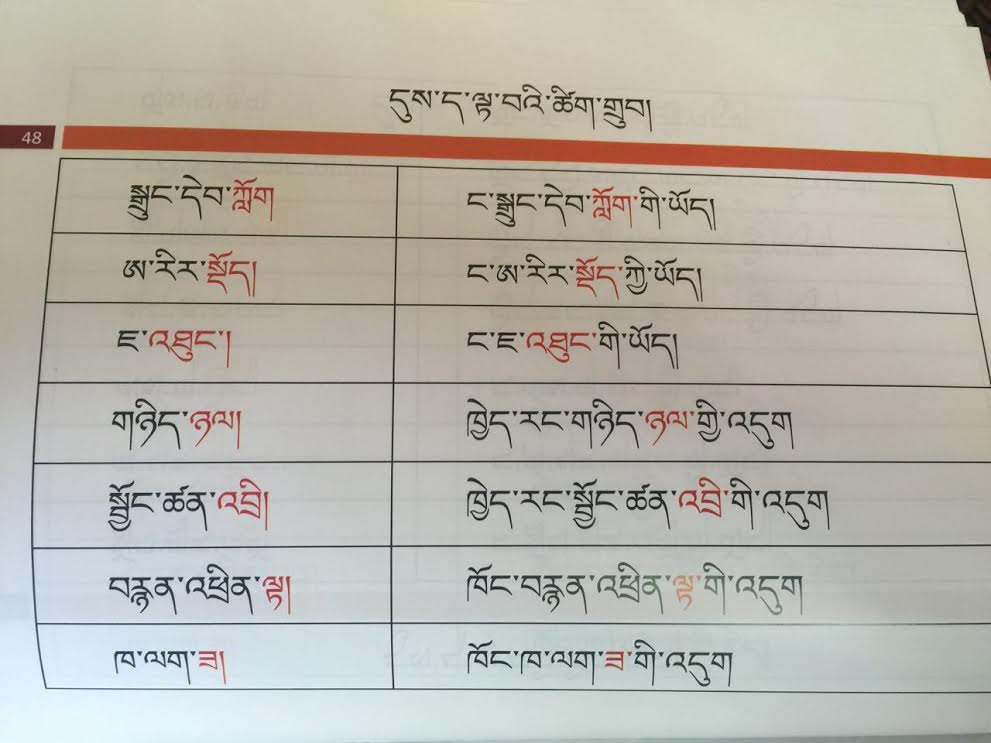 དུས་ད་ལྟ་བའི་ཚིག་གྲུབ།
48
སྦྱང་དེབ་ཀློག ང་སྦྱང་དེབ་ཀློག་གི་ཡོད།
ཨ་རིར་སྡོད། ང་ཨ་རིར་སྡོད་ཀྱི་ཡོད།
ཇ་འཐུང་། ང་ཇ་འཐུང་གི་ཡོད།
གཉིད་ཉལ། ཁྱེད་རང་གཉིད་ཉལ་གྱི་འདུག
སྦྱོང་ཚན་འབྲི། ཁྱེད་རང་སྦྱོང་ཚན་འབྲི་གི་འདུག
བརྙན་འཕྲིན་ལྟ། ཁོང་བརྙན་འཕྲིན་ལྟ་གི་འདུག
ཁ་ལག་ཟ། ཁོང་ཁ་ལག་ཟ་གི་འདུག